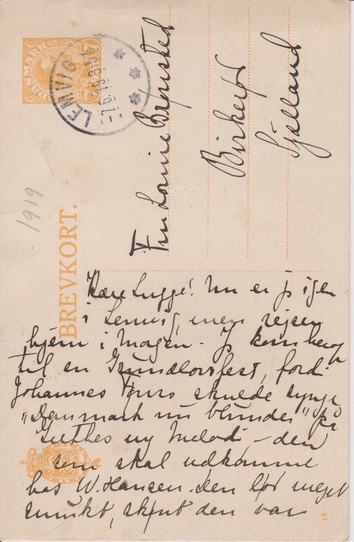 DANMARK
LEMVIG
Fru Louise Brønsted
Birkerød
Sjælland
1919
BREVKORT.
Kære Lugge! Nu er jeg igen
i Lemvig, men rejser
hjem i Morgen. Jeg kom herop
til en Grundlovsfest, fordi
Johannes Fønss skulde synge
"Danmark nu blunder" på
Guthes ny Melodi – den
som skal udkomme
hos W. Hansen. Den lød meget
smukt, skønt den var